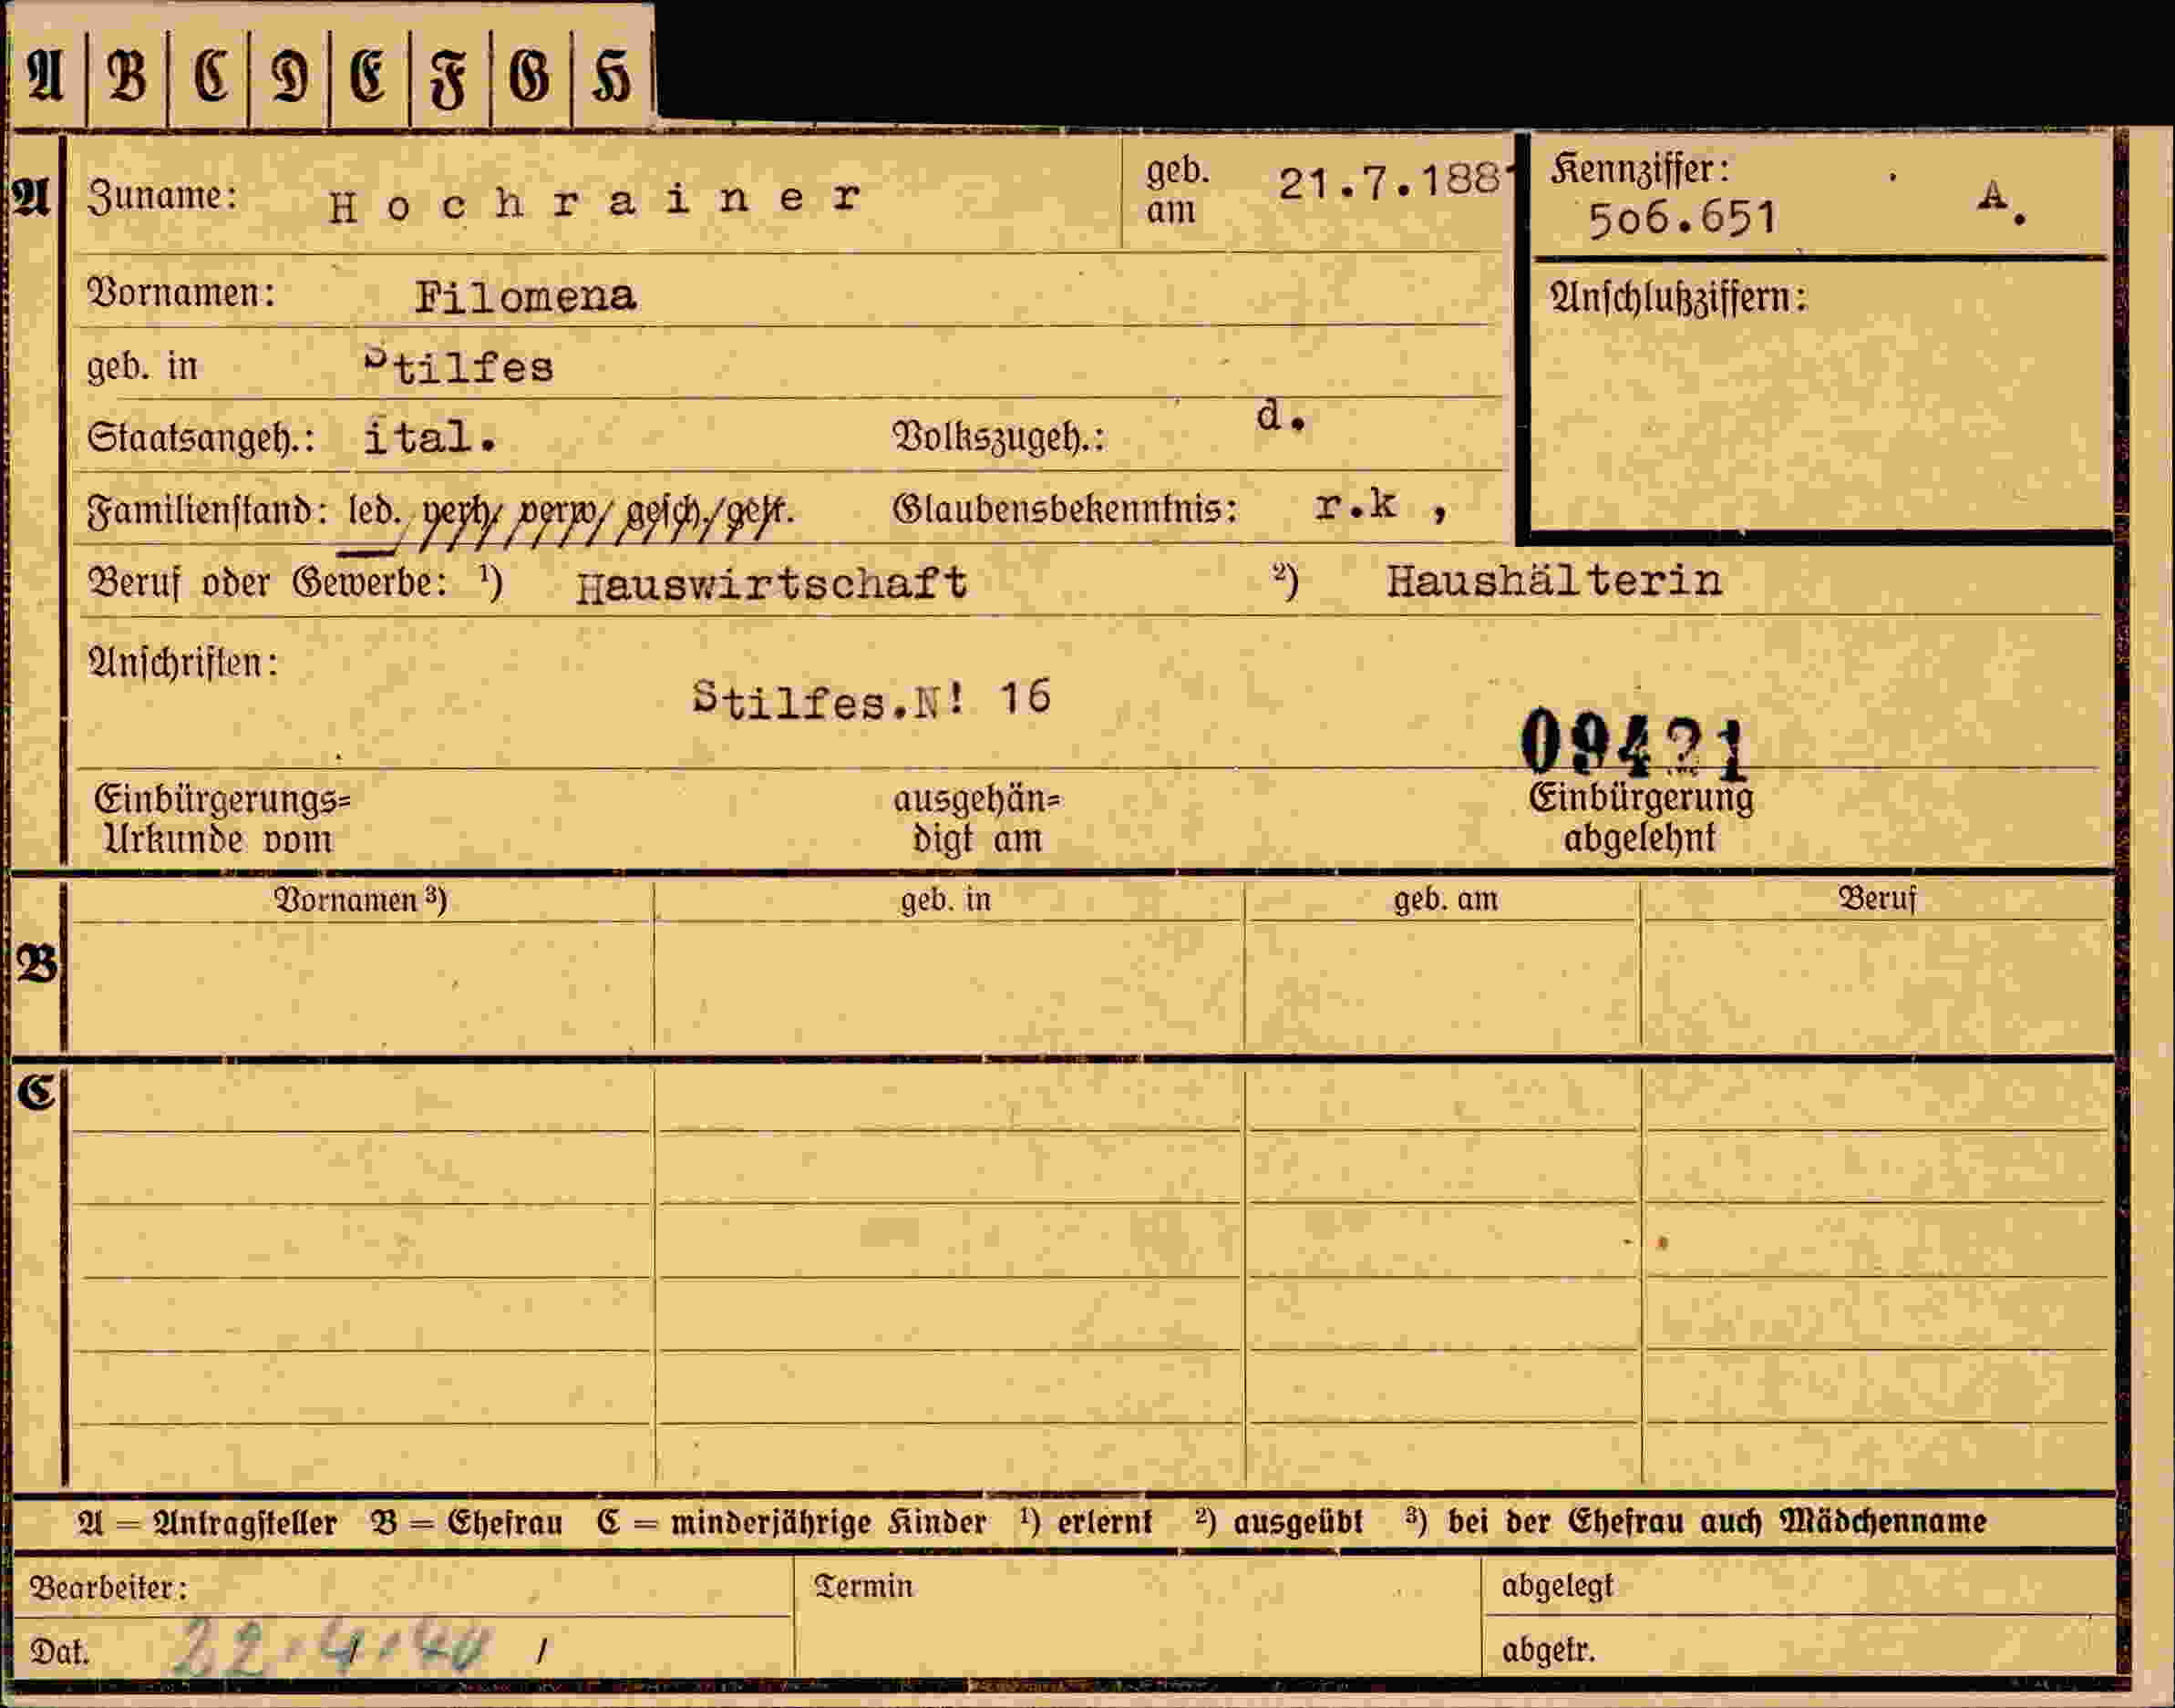 A B C D E F G H
A Zuname: Hochrainer geb. am 21.7.1881 Kennziffer: 506.651 A.
Vornamen: Filomena Anschlußziffern:
geb. in Stilfes
Staatsangeh.: ital. Volkszugeh.: d.
Familienstand: led. verh. verw. gesch. getr. Glaubensbekenntnis: r.k ,
Beruf oder Gewerbe: ¹) Hauswirtschaft ²) Haushälterin
Anschriften:
Stilfes.N! 16
09421
Einbürgerungs=
Urkunde vom
ausgehän=
digt am
Einbürgerung
abgelehnt
Vornamen ³) geb. in geb. am Beruf
B
C
A = Antragsteller B = Ehefrau C = minderjährige Kinder ¹) erlernt ²) ausgeübt ³) bei der Ehefrau auch Mädchenname
Bearbeiter: Termin abgelegt
Dat. 22.4.40 / abgetr.